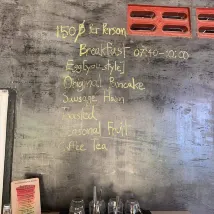 150฿ Per Person
Breakfast 07:40-10:00
Egg [your style]
Original Pancake
Sausage Ham
Toasted
Seasonal Fruit
Tea